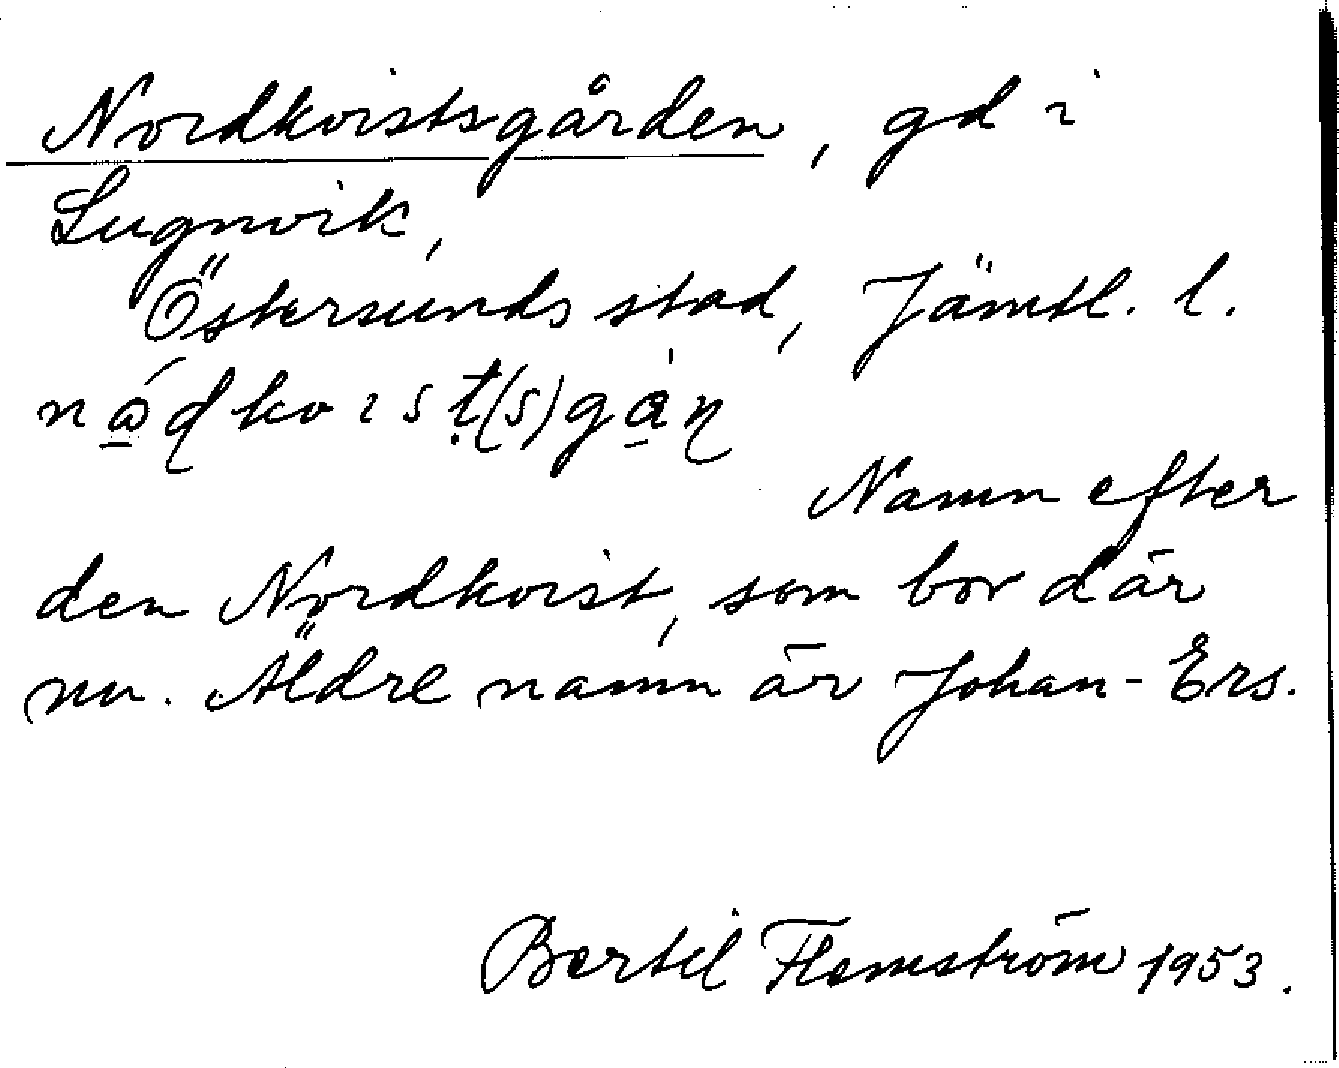 Nordkvistsgården, gd i
Lugnvik,
Östersunds stad, Jämtl. l.
Namn efter
den Nordkvist, som bor där
nu. Äldre namn är Johan-Ers.
Bertil Flemström 1953.